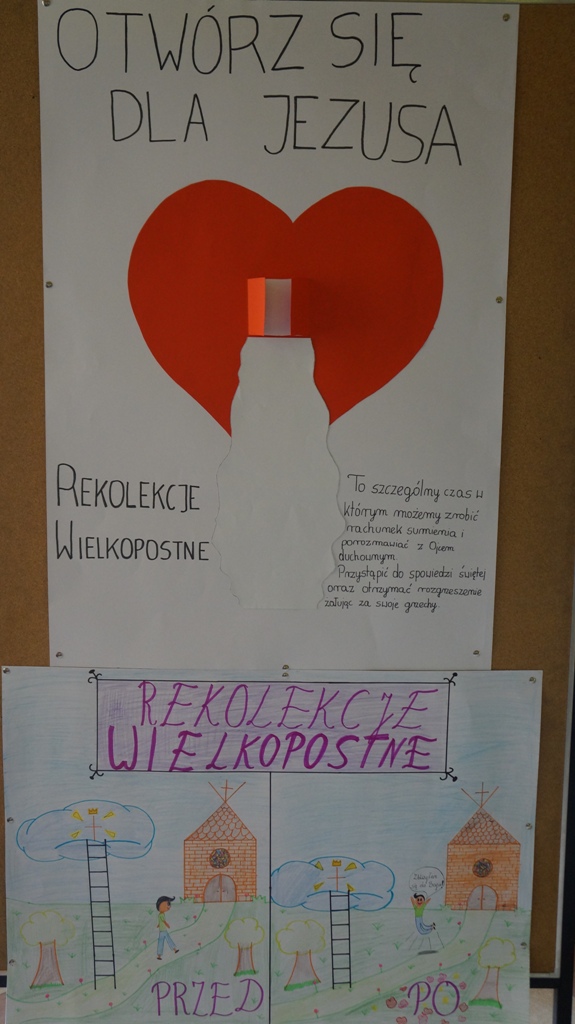 OTWÓRZ SIĘ
DLA JEZUSA
REKOLEKCJE
WIELKOPOSTNE
To szczególny czas w
którym możemy zrobić
rachunek sumienia i
porozmawiać z Ojcem
duchownym.
Przystąpić do spowiedzi świętej
oraz otrzymać rozgrzeszenie
żałując za swoje grzechy.
REKOLEKCJE
WIELKOPOSTNE
PRZED
PO